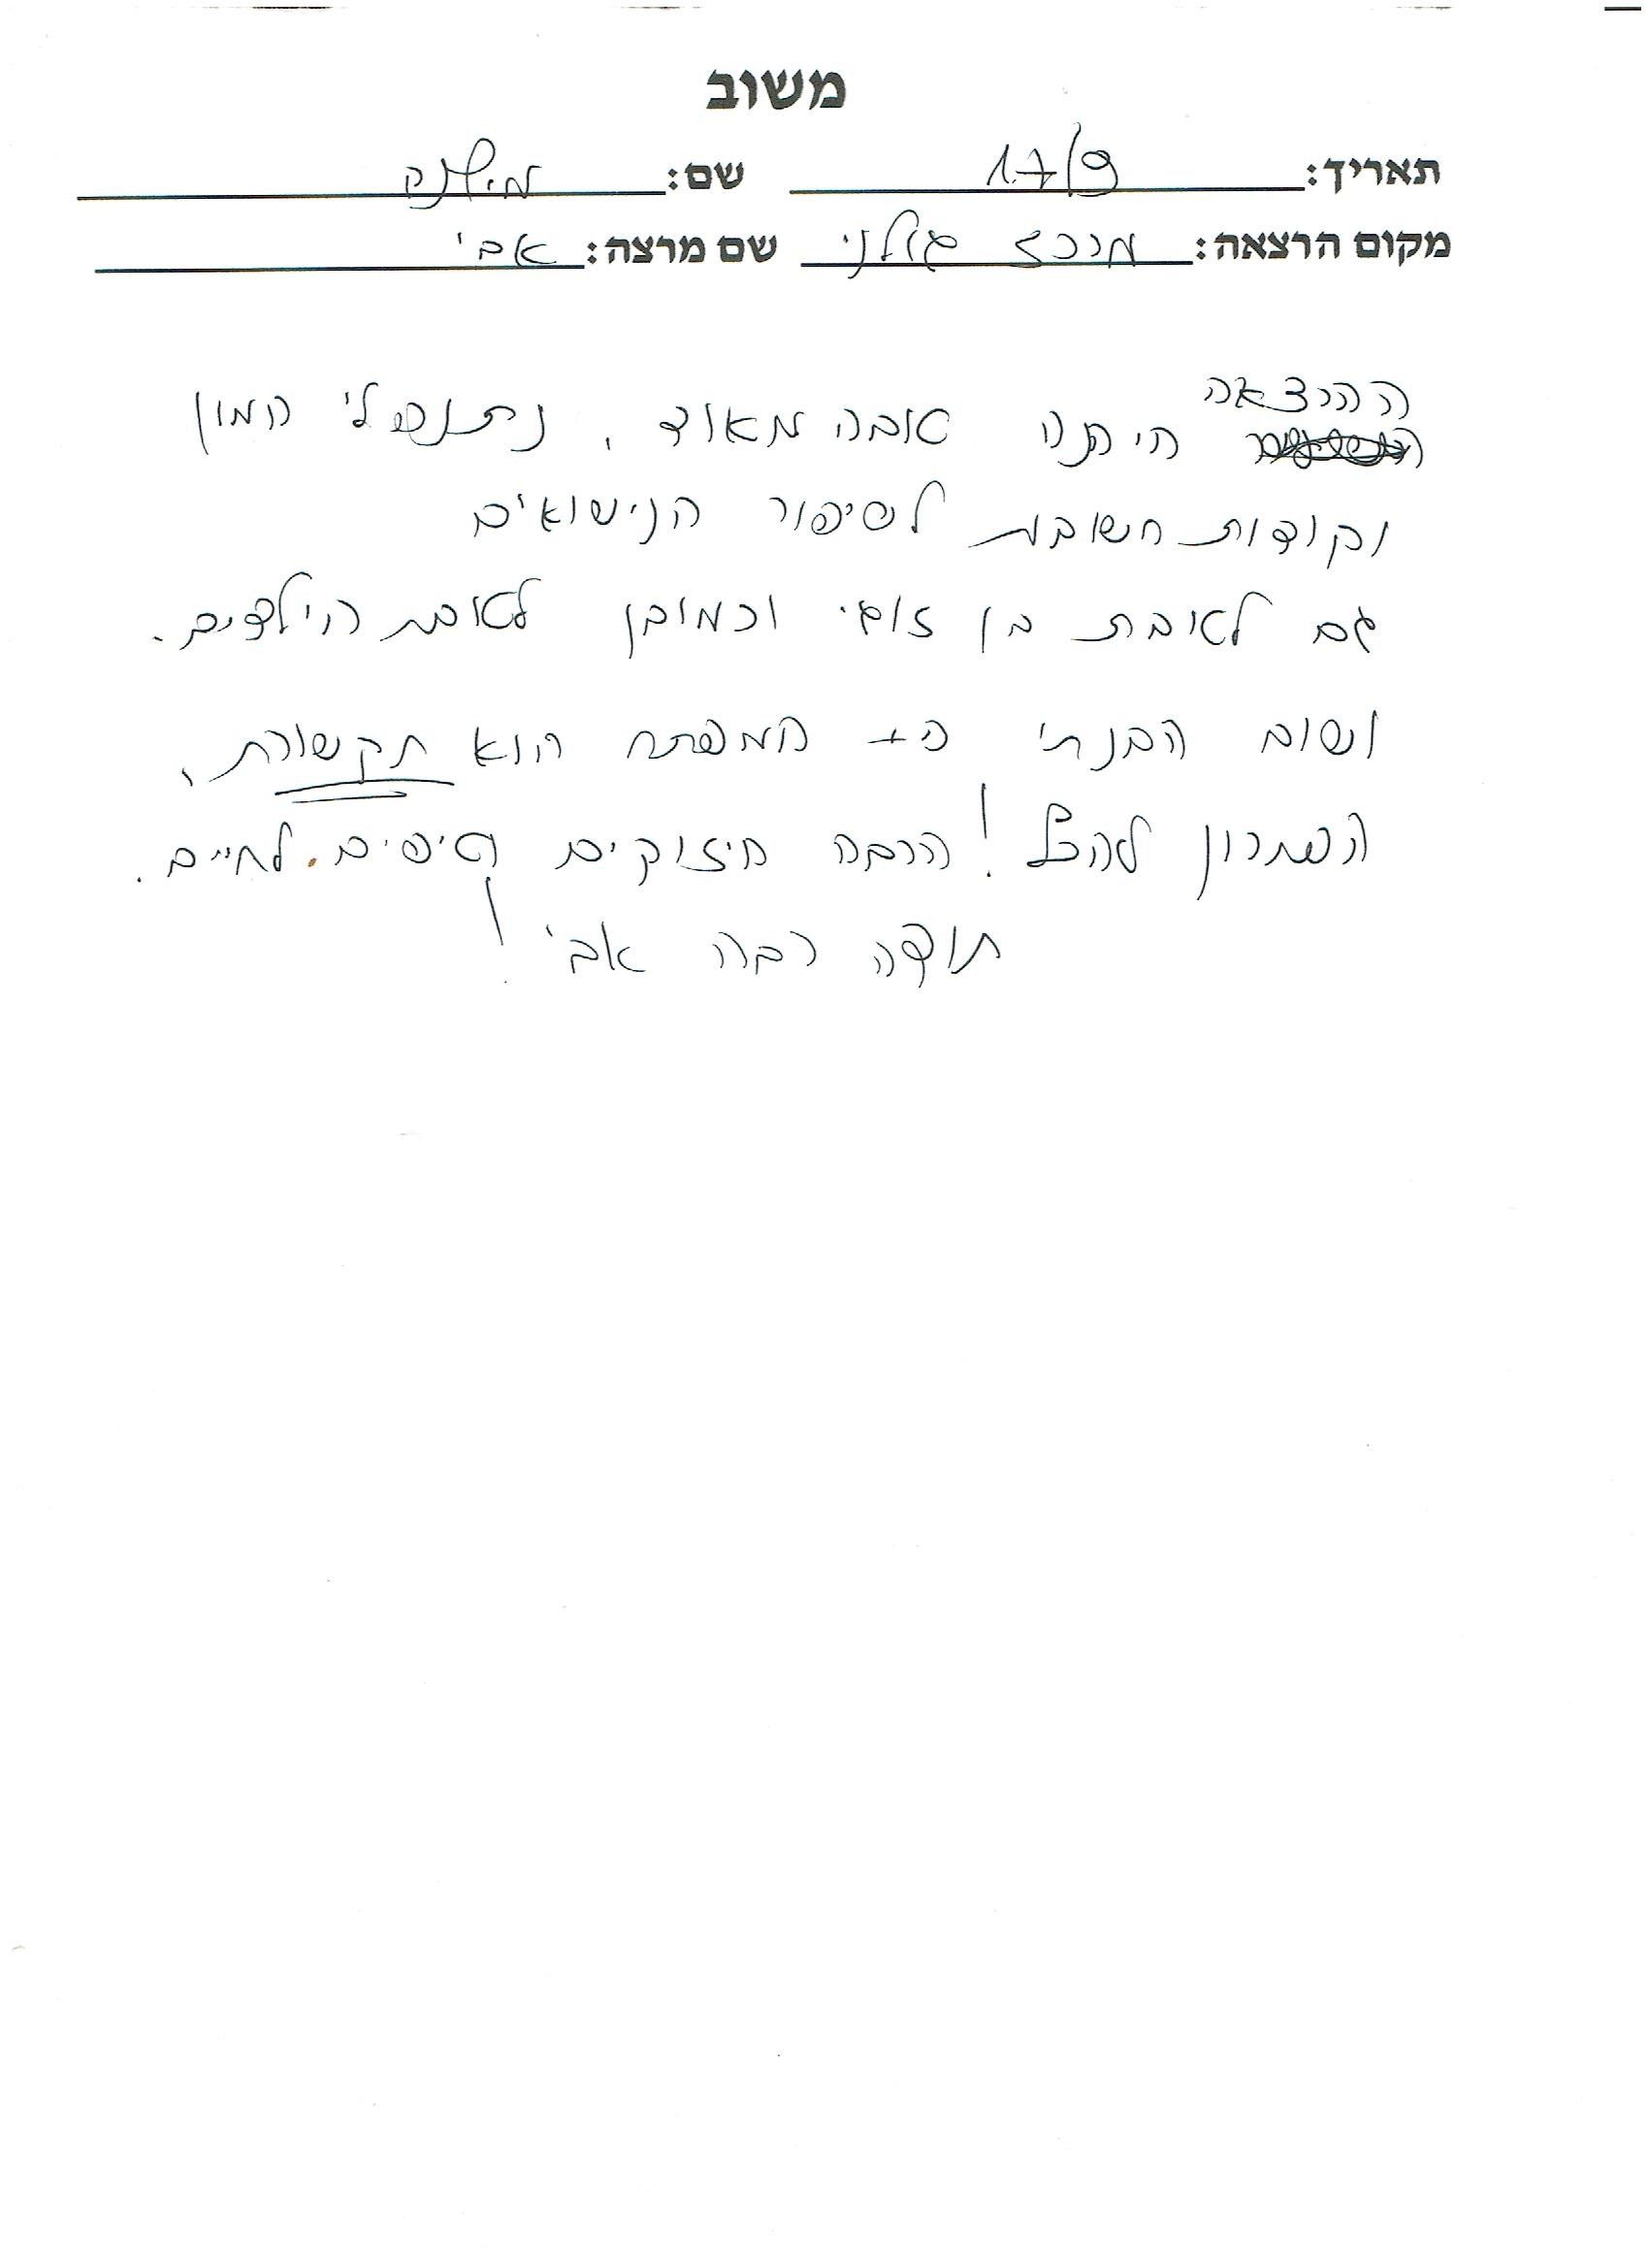 משוב
תאריך: 17/9 שם:
מקום הרצאה: מרכז גולני שם מרצה: אבי
ההרצאה
היתה טובה מאוד, נתנה לי המון
נקודות חשובות לשיפור הנישואים
גם לאהבת בן זוגי וכמובן לאהבת הילדים.
ושוב הבנתי כי המפתח הוא תקשורת,
הפתרון להכל! הרבה חיזוקים וטיפים לחיים.
תודה רבה אבי!